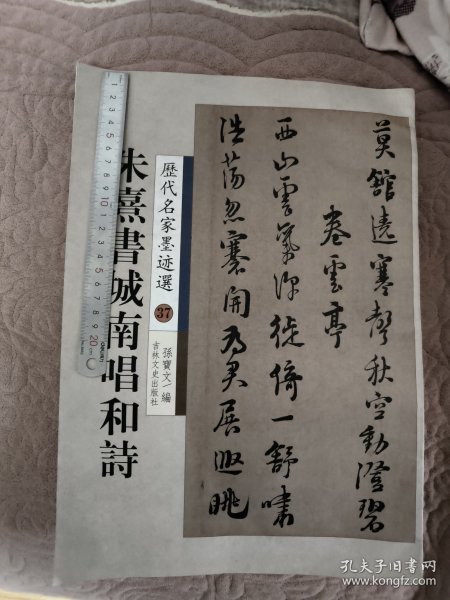 莫館遶寒聲秋空動澄碧
卷雲亭
西山雲氣深徙倚一舒嘯
浩蕩忽褰開為君展遐眺
歷代名家墨迹選
37
孫寶文/編
吉林文史出版社
朱熹書城南唱和詩
1 2 3 4 5 6 7 8 9 10 1 2 3 4 5 6 7 8 9 20 cm
孔夫子旧书网
www.kongfz.com